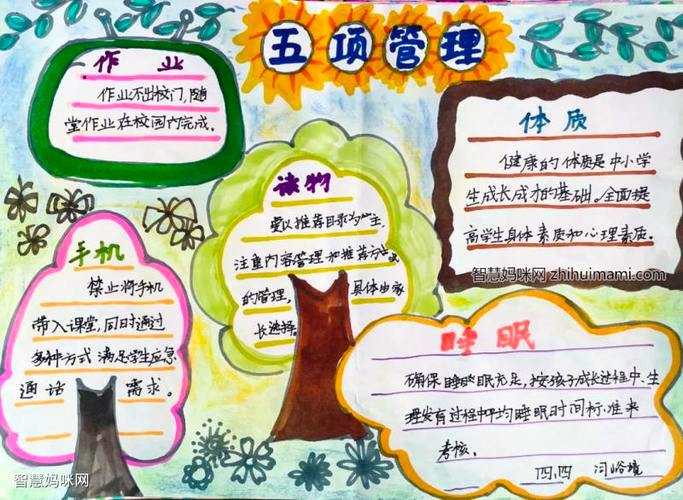 五项管理
作业
作业不出校门,随
堂作业在校园内完成。
体质
健康的体质是中小学
生成长成才的基础。全面提
高学生身体素质和心理素质。
智慧妈咪网 zhihuimami.com
读物
要以推荐目录为主,
注重内容管理和推荐方式
的管理,具体由家
长选择。
手机
禁止将手机
带入课堂,同时通过
多种方式 满足学生应急
通话需求。
睡眠
确保睡眠充足,按孩子成长过程中、生
理发育过程中平均睡眠时间标准来
考核。
四.四
智慧妈咪网